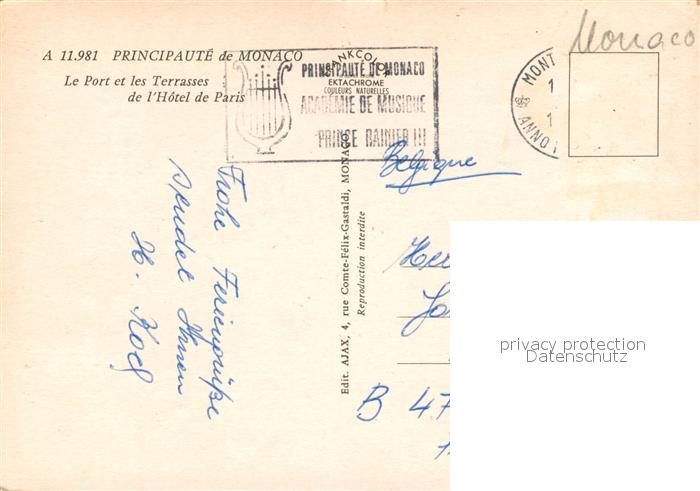 Monaco
A 11.981 PRINCIPAUTÉ de MONACO
Le Port et les Terrasses
de l'Hôtel de Paris
MANKCOLOR
EKTACHROME
COULEURS NATURELLES
PRINCIPAUTÉ DE MONACO
ACADÉMIE DE MUSIQUE
PRINCE RAINIER III
MONT
1
1
ANNO 1
Edit. AJAX, 4, rue Comte-Félix-Gastaldi, MONACO
Reproduction interdite
Frohe Feriengrüße
sendet Ihnen
H. Koch
Belgique
B 47
privacy protection
Datenschutz